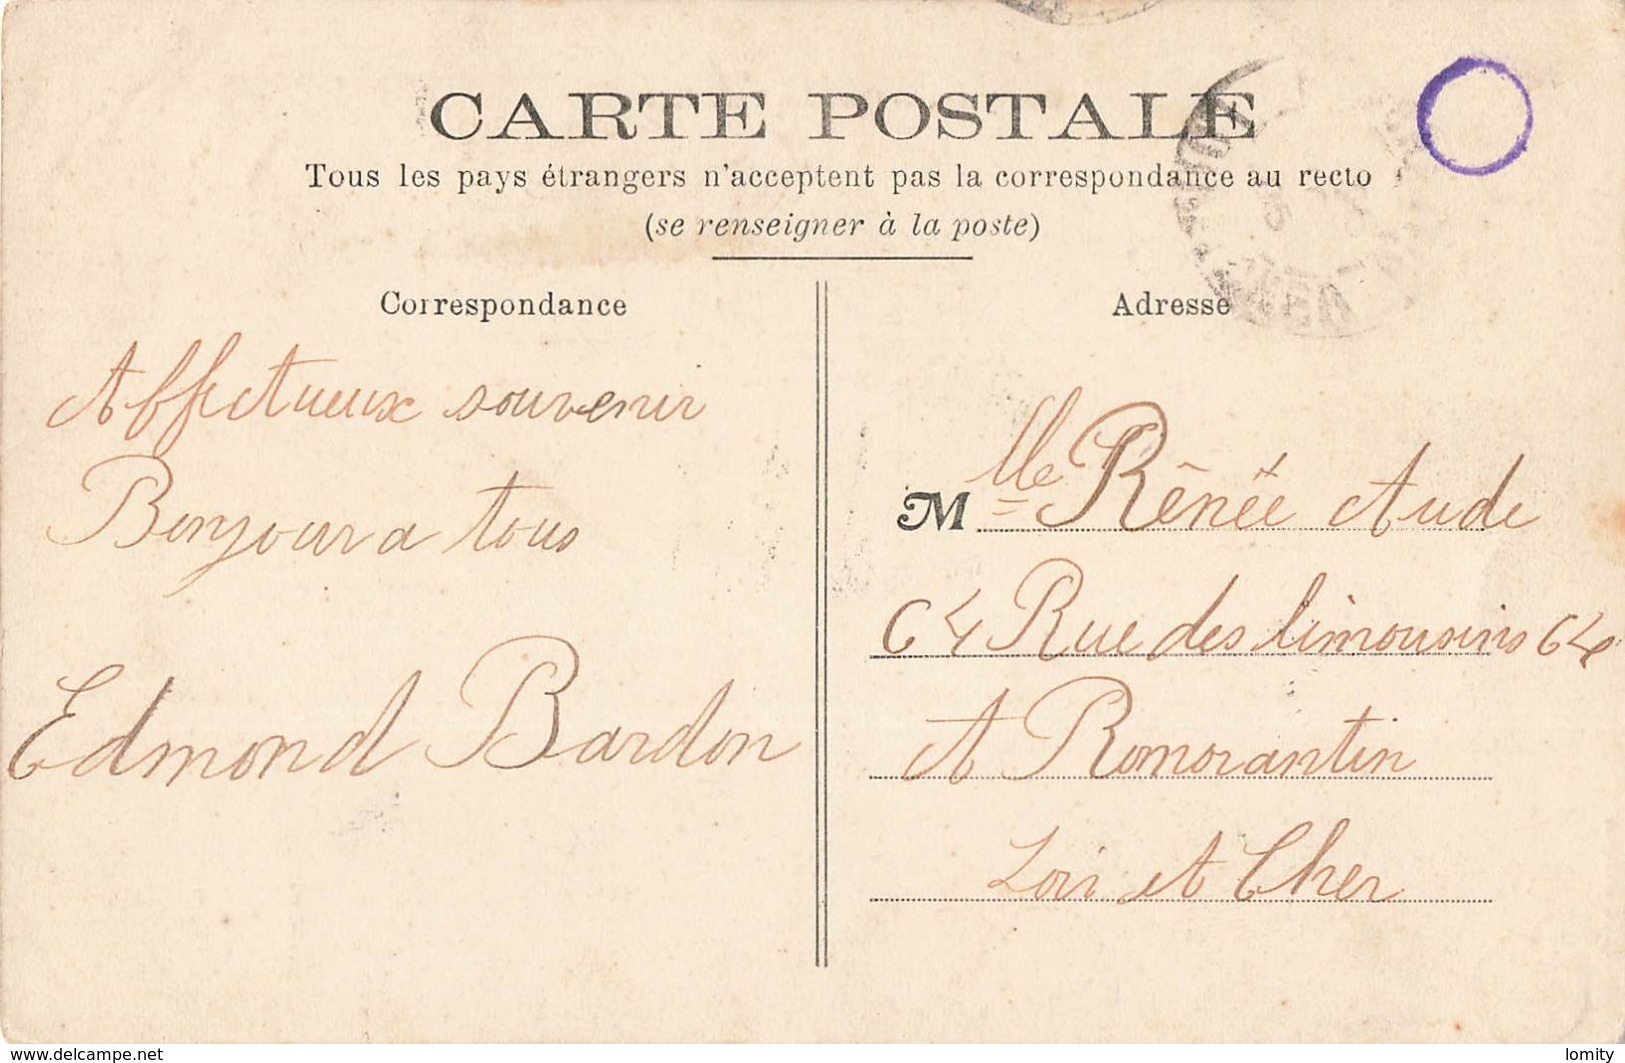 CARTE POSTALE
Tous les pays étrangers n'acceptent pas la correspondance au recto
(se renseigner à la poste)
Correspondance
Affectueux souvenir
Bonjour a tous
Edmond Bardon
Adresse
Mlle Rênée Aude
64 Rue des limousins 64
A Romorantin
Loir et Cher
www.delcampe.net
lomity